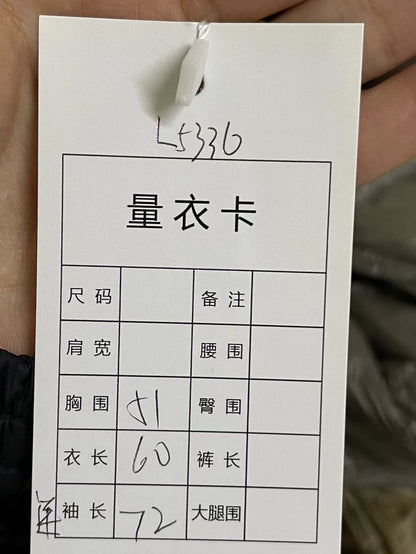 L5336
量衣卡
尺码 备注
肩宽 腰围
胸围 51 臀围
衣长 60 裤长
连 袖长 72 大腿围